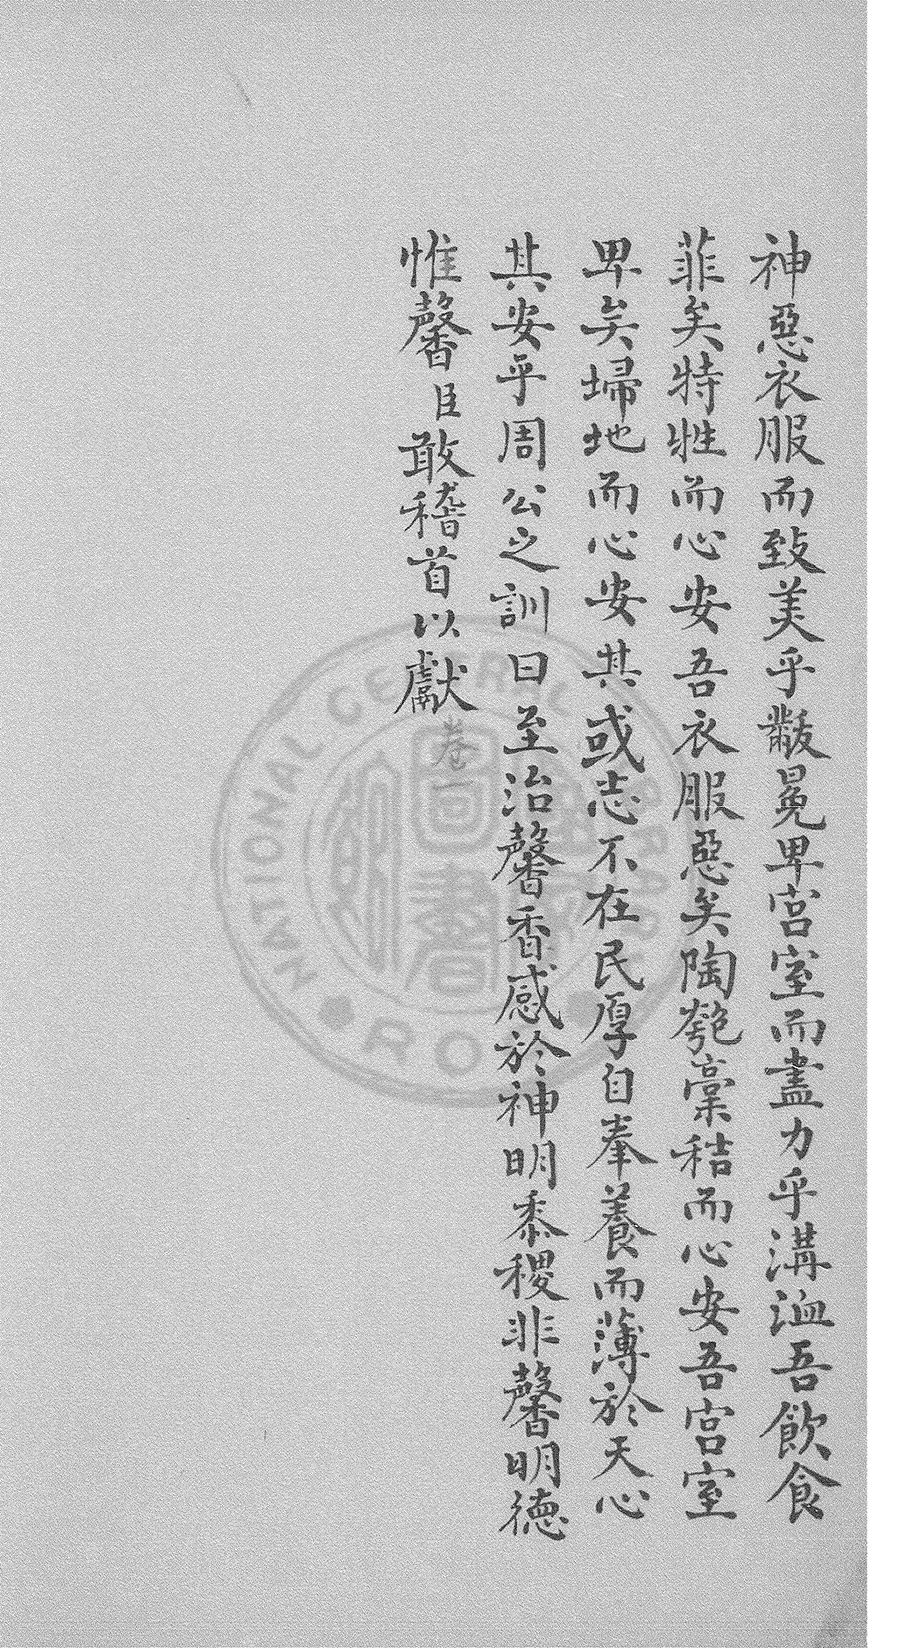 神惡衣服而致美乎黻冕卑宮室而盡力乎溝洫吾飲食
菲矣特牲而心安吾衣服惡矣陶匏稾秸而心安吾宮室
卑矣埽地而心安其或志不在民厚自奉養而薄於天心
其安乎周公之訓曰至治馨香感於神明黍稷非馨明德
惟馨臣敢稽首以獻
卷一
NATIONAL CENTRAL LIBRARY
ROC